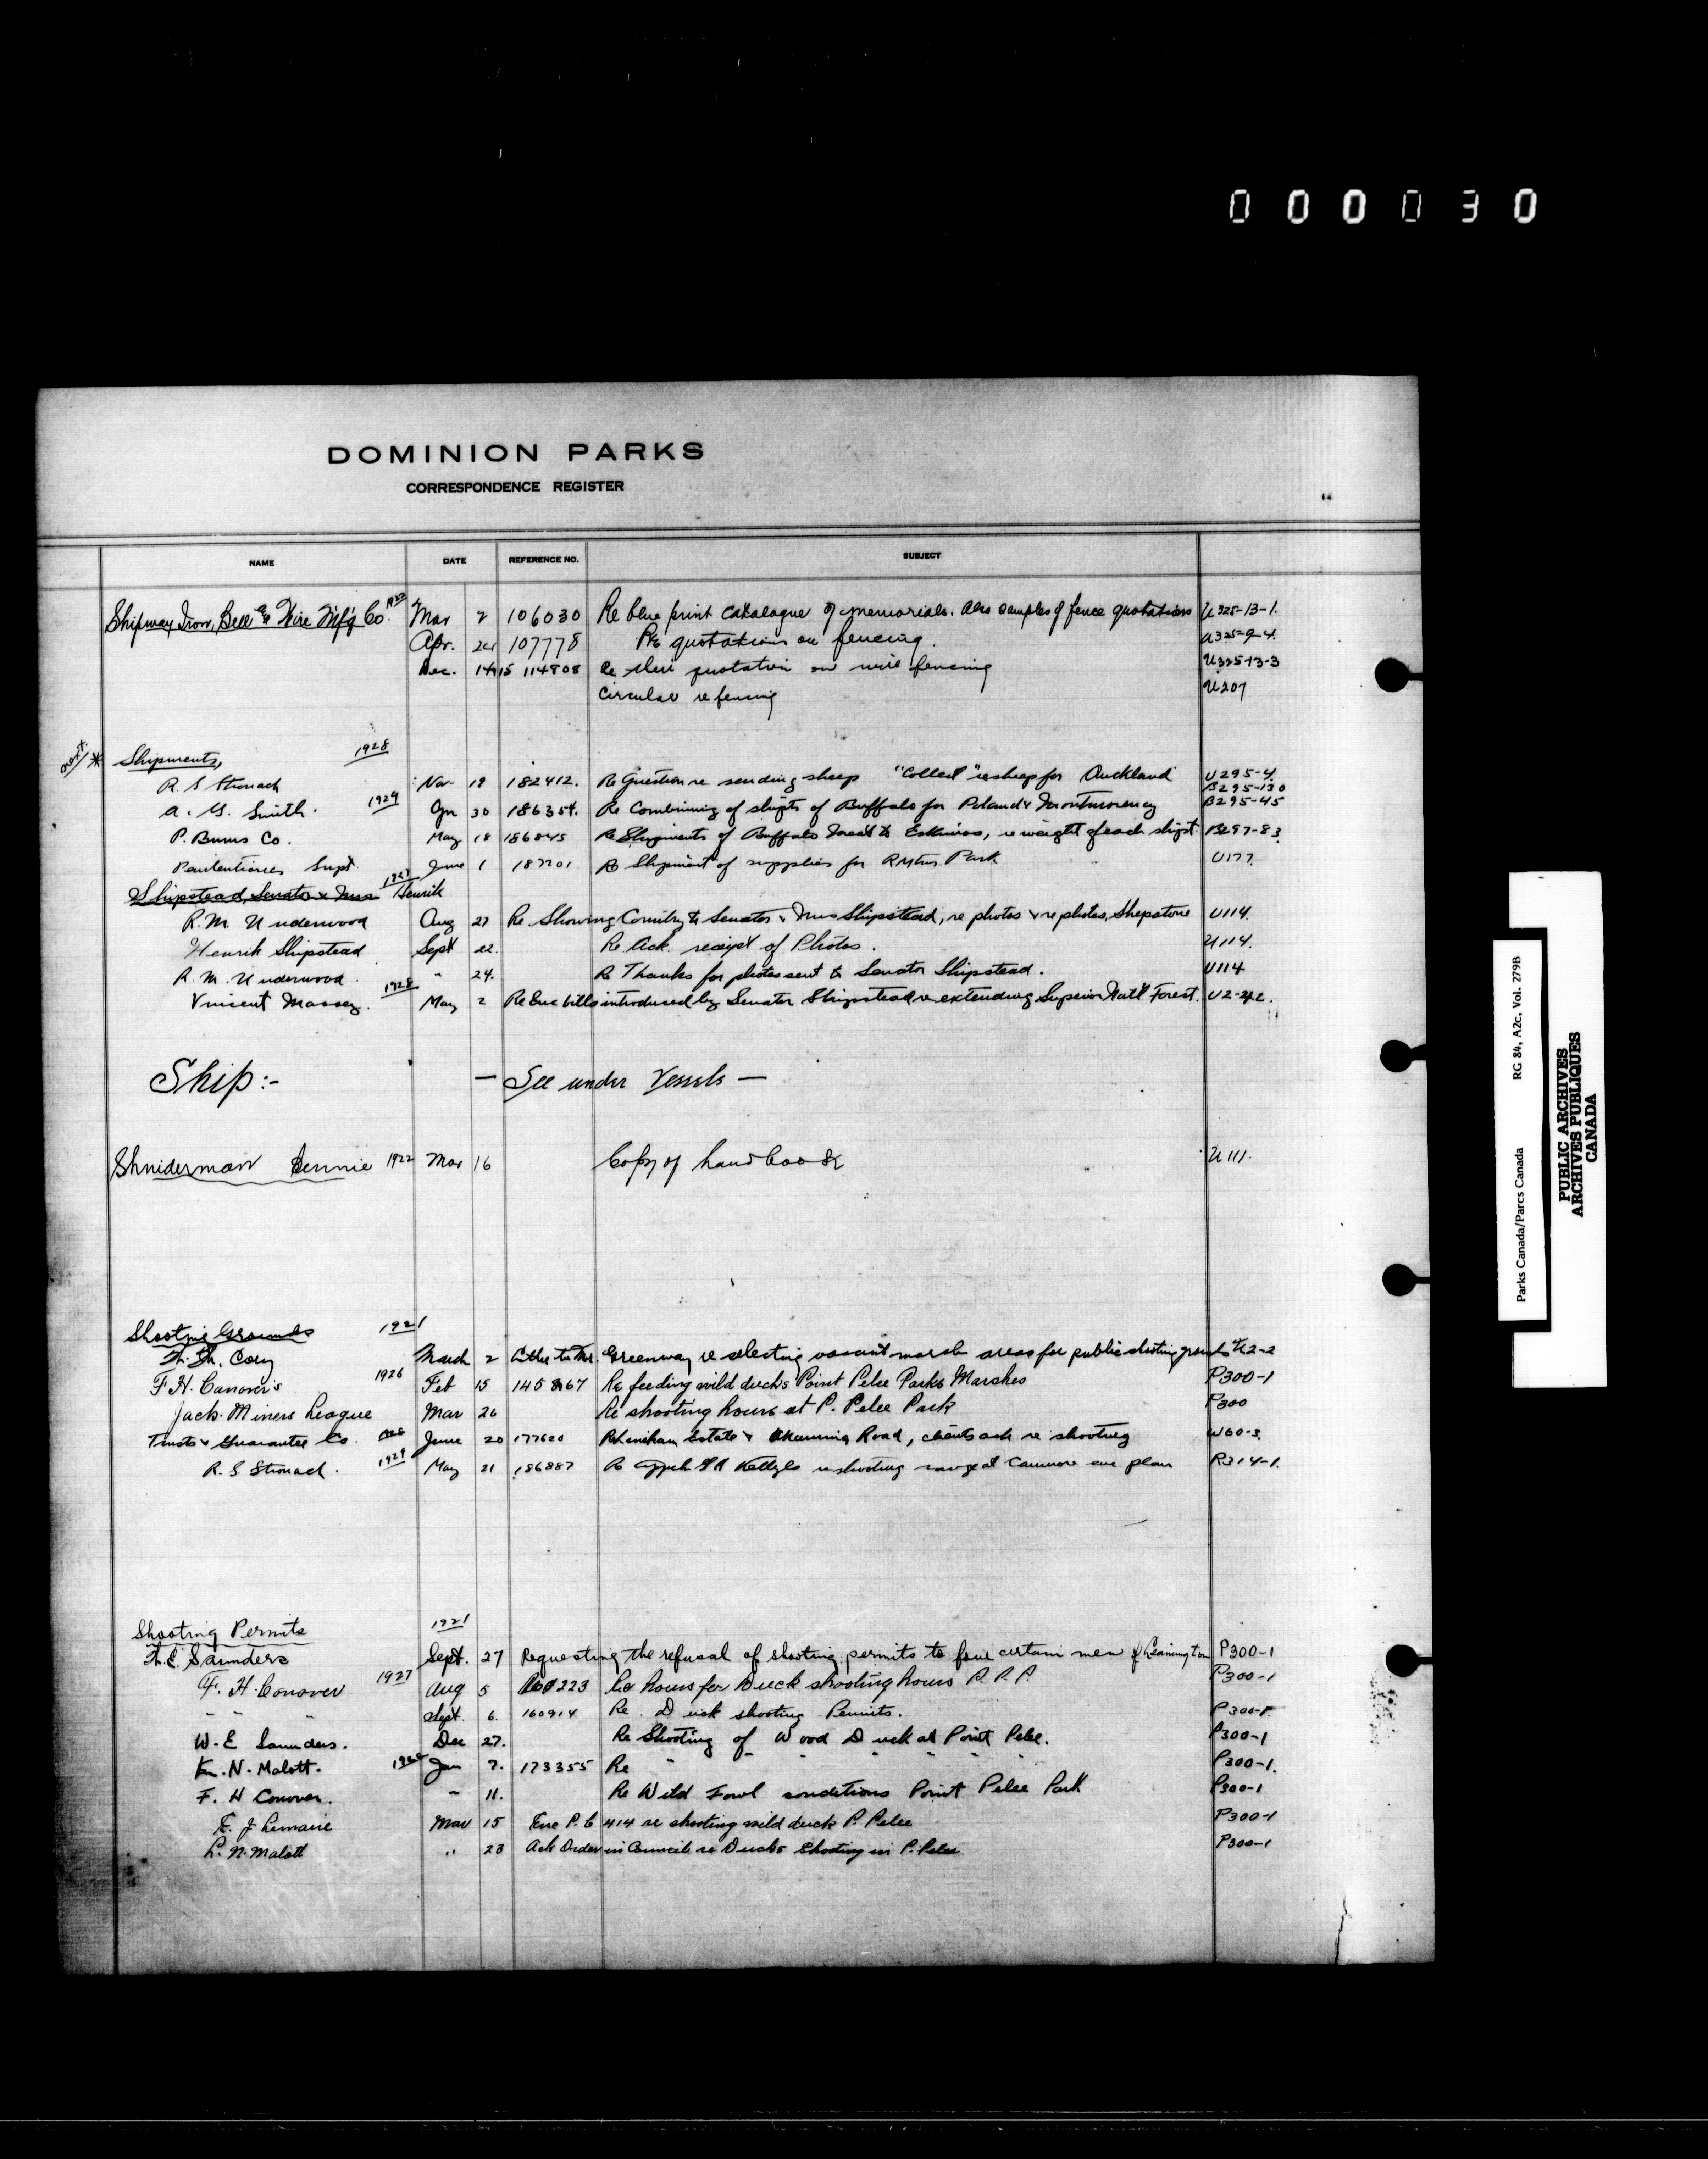 000030
DOMINION PARKS
CORRESPONDENCE REGISTER
NAME DATE REFERENCE NO. SUBJECT
Shipway Iron, Bell & Wire Mf'g Co. 1922 Mar 2 106030 Re blue print catalogue of memorials. Also samples of fence quotations U325-13-1.
Apr. 24 107778 Re quotations on fencing. U325-9-4.
Dec. 14 15 114808 Re their quotation on wire fencing U325-13-3
Circular re fencing U207
Shipments, 1928
R. S Stronach Nov 19 182412. Re Question re sending sheep "Collect" re sheep for Auckland U295-4.
B295-130
A. G. Smith. 1929 30 186354. Re Combining of shipts of Buffalo for Poland & Montmorency B295-45
P. Burns Co. May 18 186845 Re Shipments of Buffalo Meat to Eskimos, re weight of each shipt. B297-83
Penitentiaries Supt. June 1 187201 Re Shipment of supplies for Park U177.
Shipstead, Senator & Mrs Henrik 1927
R. M. Underwood Aug 27 Re. Showing Country to Senator & Mrs Shipstead, re photos & re photos, Shepstone U114.
Henrik Shipstead Sept 22. Re Ack. receipt of Photos. U114.
R. M. Underwood. " 24. Re Thanks for photos sent to Senator Shipstead. U114
Vincent Massey. 1928 May 2 Re Enc bills introduced by Senator Shipstead re extending Superior Nat'l Forest. U2-22.
Ship:- — See under Vessels —
Shniderman Bennie 1922 Mar 16 Copy of handbook U111.
Shooting Grounds 1921
Cory March 2 Letter to Mr. Greenway re selecting vacant marsh areas for public shooting grounds U2-2
F. H. Conover's 1926 Feb 15 145867 Re feeding wild ducks Point Pelee Parks Marshes P300-1
Jack Miners League Mar 26 Re shooting hours at P. Pelee Park P300
Trusts & Guarantee Co. 1928 June 20 177620 Re Lenihan Estate & Road, clients ask re shooting W60-3.
R. S. Stronach. 1929 May 21 186887 Re re shooting range at Canmore enc plan R314-1.
Shooting Permits 1921
Saunders Sept. 27 Requesting the refusal of shooting permits to four certain men of Leamington P300-1
F. H. Conover 1927 Aug 5 160223 Re hours for Duck shooting hours P. P. P. P300-1
" " " Sept. 6. 160914 Re. Duck shooting Permits. P300-1
W. E Saunders. Dec 27. Re Shooting of Wood Duck at Point Pelee. P300-1
K. N. Malott. 1928 Jan 7. 173355 Re " " " " " P300-1.
F. H Conover. " 11. Re Wild Fowl conditions Point Pelee Park P300-1
E. J Lemaire Mar 15 Enc P. C 414 re shooting wild duck P. Pelee P300-1
L. N. Malott " 23 Ack Order in Council re Ducks Shooting in P. Pelee P300-1
Parks Canada/Parcs Canada RG 84, A2c, Vol. 279B
PUBLIC ARCHIVES
ARCHIVES PUBLIQUES
CANADA